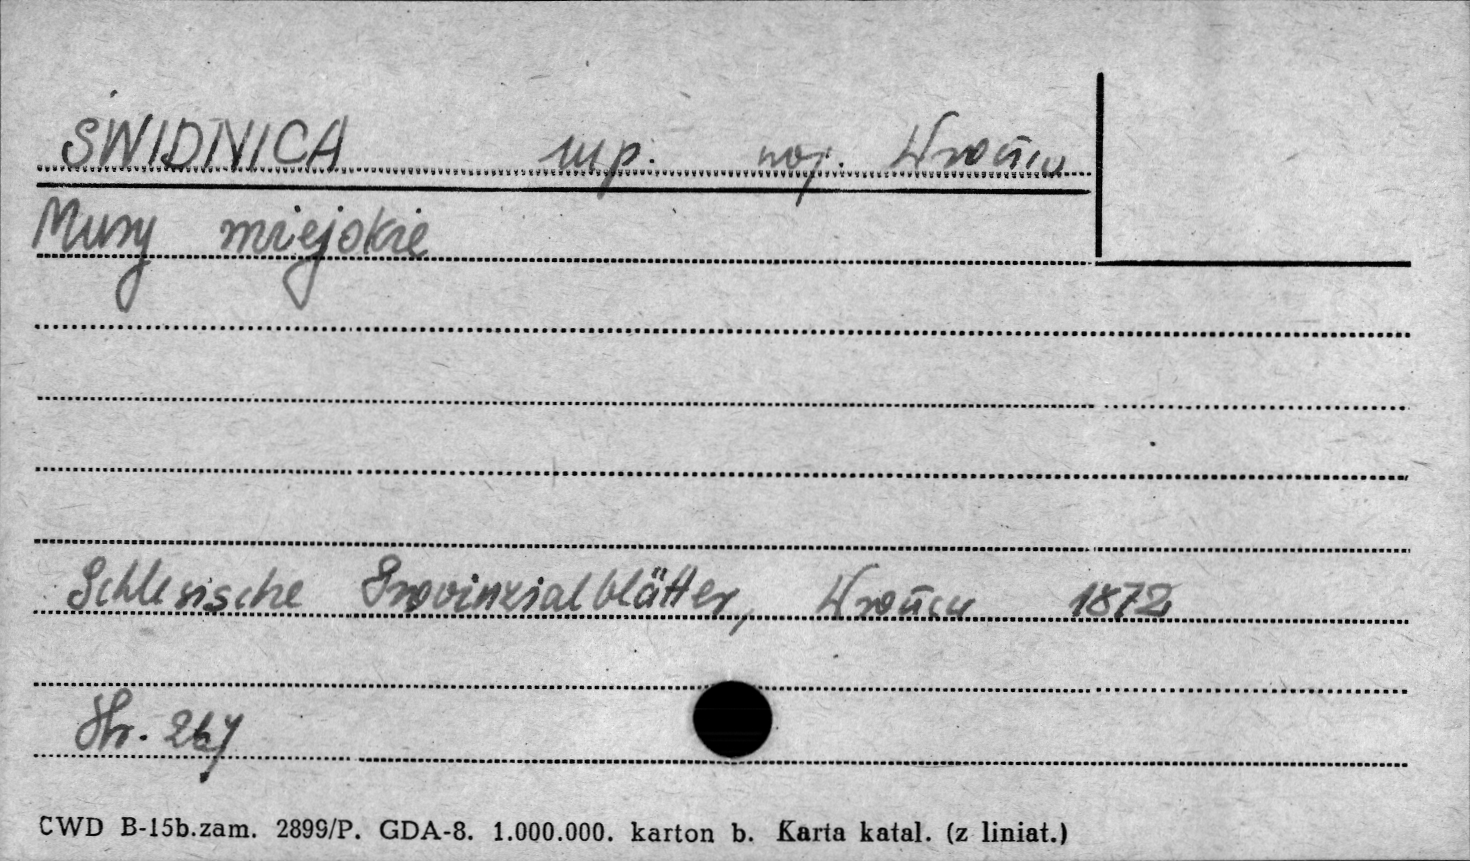 ŚWIDNICA mp. woj. Wrocław
Mury miejskie
Schlesische Provinzialblätter, Wrocław 1872
Str. 267
CWD B-15b.zam. 2899/P. GDA-8. 1.000.000. karton b. Karta katal. (z liniat.)